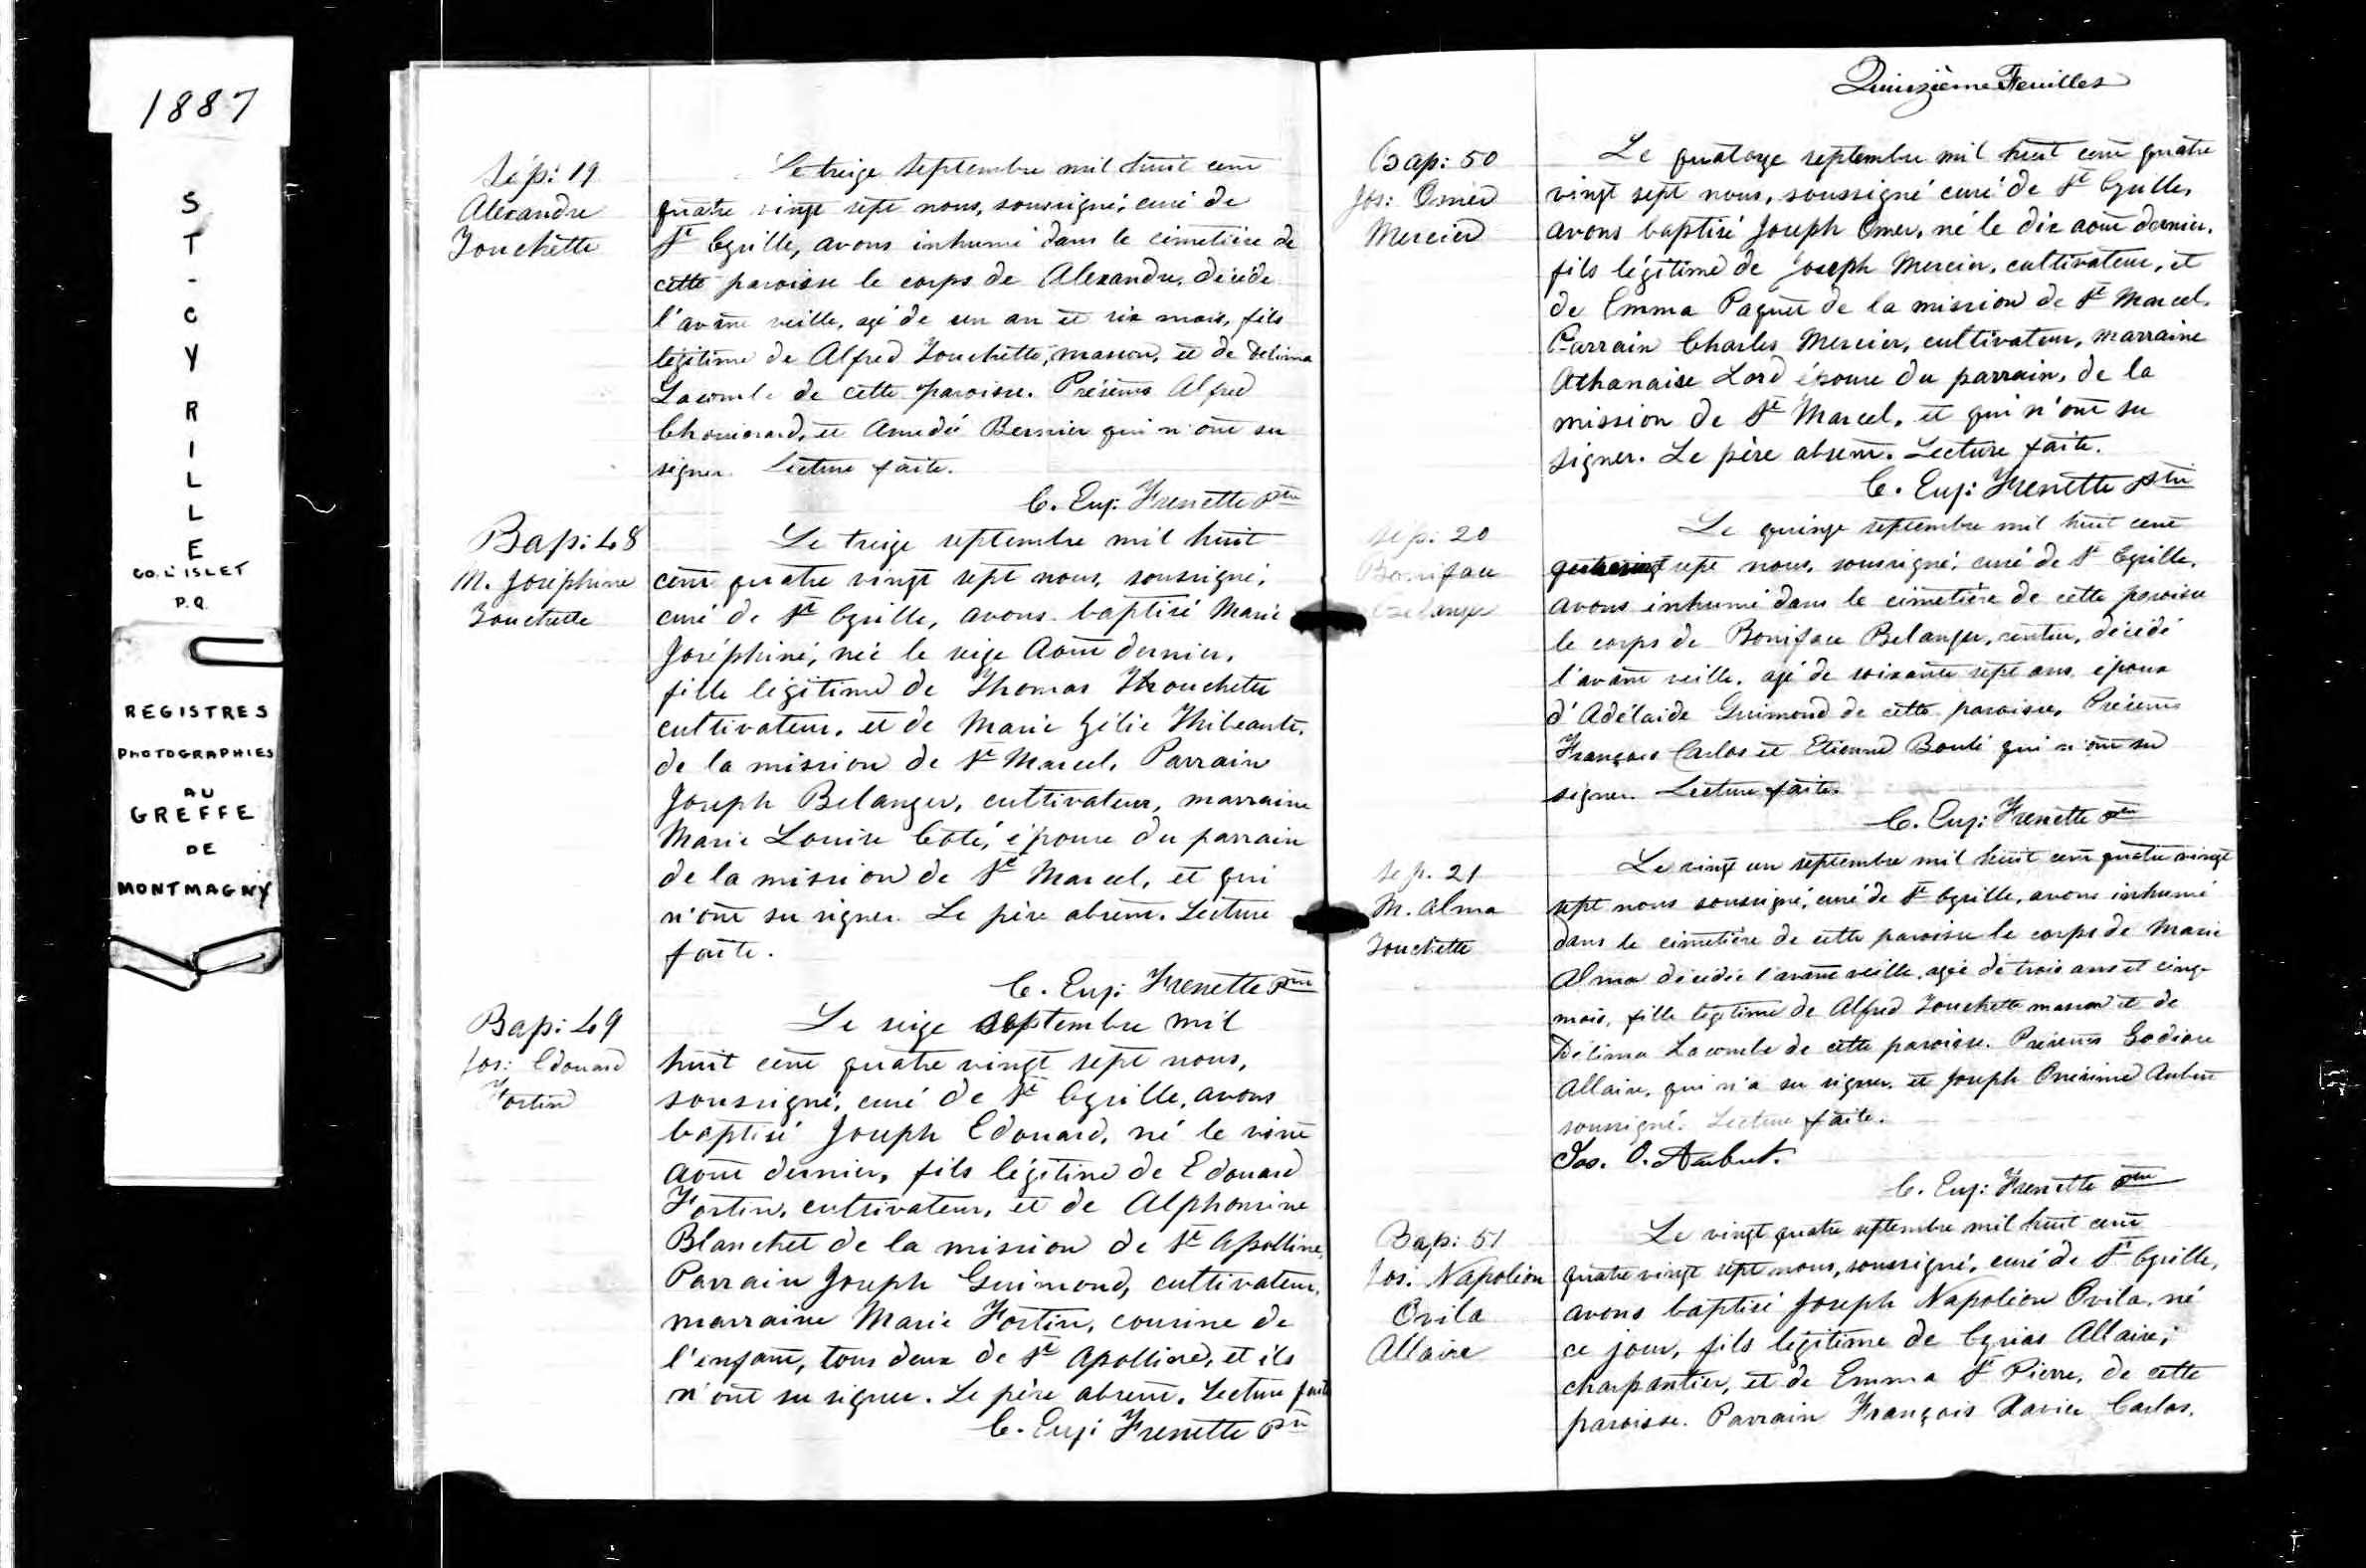 1887
ST-CYRILLE
CO. L'ISLET
P.Q.
REGISTRES
PHOTOGRAPHIES
AU
GREFFE
DE
MONTMAGNY
Sép: 19
Alexandre
Touchette
Le treize septembre mil huit cent
quatre vingt sept nous, soussigné, curé de
St Cyrille, avons inhumé dans le cimetière de
cette paroisse le corps de Alexandre, décédé
l'avant veille, agé de un an et six mois, fils
légitime de Alfred Touchette, masson, et de Delima
Lacombe de cette paroisse. Présents Alfred
Chouinard, et Amedé Bernier qui n'ont su
signer. Lecture faite.
C. Eug: Frenette ptre
Bap: 48
M. Joséphine
Touchette
Le treize septembre mil huit
cent quatre vingt sept nous, soussigné,
curé de St Cyrille, avons baptisé Marie
Joséphine, née le seize Août dernier,
fille légitime de Thomas Thouchette
cultivateur, et de Marie Zélie Thibeault,
de la mission de St Marcel. Parrain
Joseph Belanger, cultivateur, marraine
Marie Louise Coté, épouse du parrain
de la mission de St Marcel, et qui
n'ont su signer. Le père absent. Lecture
faite.
C. Eug: Frenette ptre
Bap: 49
Jos: Edouard
Fortin
Le seize septembre mil
huit cent quatre vingt sept nous,
soussigné, curé de St Cyrille, avons
baptisé Joseph Edouard, né le vint
Août dernier, fils légitime de Edouard
Fortin, cultivateur, et de Alphonsine
Blanchet de la mission de St Apolline,
Parrain Joseph Guimond, cultivateur,
marraine Marie Fortin, cousine de
l'enfant, tous deux de St Apolline, et ils
n'ont su signer. Le père absent. Lecture faite
C. Eug: Frenette ptre
Quinzième Feuilles
Bap: 50
Jos: Omer
Mercier
Le quatorze septembre mil huit cent quatre
vingt sept nous, soussigné curé de St Cyrille,
avons baptisé Joseph Omer, né le dix août dernier,
fils légitime de Joseph Mercier, cultivateur, et
de Emma Paquet de la mission de St Marcel.
Parrain Charles Mercier, cultivateur, marraine
Athanaise Lord épouse du parrain, de la
mission de St Marcel, et qui n'ont su
signer. Le père absent. Lecture faite.
C. Eug: Frenette ptre
Sép: 20
Boniface
Belanger
Le quinze septembre mil huit cent
quatrevingt sept nous, soussigné, curé de St Cyrille,
avons inhumé dans le cimetière de cette paroisse
le corps de Boniface Belanger, rentier, décédé
l'avant veille, agé de soixante sept ans, époux
d'Adélaide Guimond de cette paroisse, Présents
François Carlos et Etienne Boulé qui n'ont su
signer. Lecture faite.
C. Eug: Frenette ptre
Sep. 21
M. Alma
Touchette
Le vingt un septembre mil huit cent quatre vingt
sept nous soussigné, curé de St Cyrille, avons inhumé
dans le cimetière de cette paroisse le corps de Marie
Alma décédée l'avant veille, agée de trois ans et cinq
mois, fille légitime de Alfred Touchette masson et de
Délima Lacombe de cette paroisse. Présents
Allaire, qui n'a su signer, et Joseph Onésime Aubut
soussigné. Lecture faite.
Jos. O. Aubut.
C. Eug: Frenette ptre
Bap: 51
Jos. Napoléon
Ovila
Allaire
Le vingt quatre septembre mil huit cent
quatre vingt sept nous, soussigné, curé de St Cyrille,
avons baptisé Joseph Napoléon Ovila, né
ce jour, fils légitime de Cyrias Allaire,
charpentier, et de Emma St Pierre, de cette
paroisse. Parrain François Xavier Carlos,